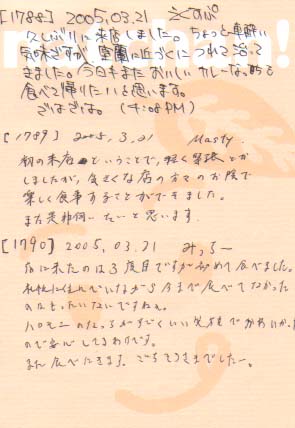 [1788] 2005.03.21 えすぷ
久しぶりに来店しました。ちょっと車酔い
気味ですが、室蘭に近づくにつれて治って
きました。今日もまたおいしいカレーを
食べて帰りたいと思います。
ではでは。(4:08PM)
[1789] 2005.3.21 Masty.
初の来店ということで、軽く緊張とか
しましたが、気さくな店の方々のお陰で
楽しく食事することができました。
また是非伺いたいと思います。
[1790] 2005.03.21 みっろー
店に来たのは3度目ですが初めて食べました。
札幌に住んでいながら今まで食べてなかった
のはもったいないですねぇ。
ハロモニの
ので安心してるわけです。
また食べにきます。ごちそうさまでしたー。